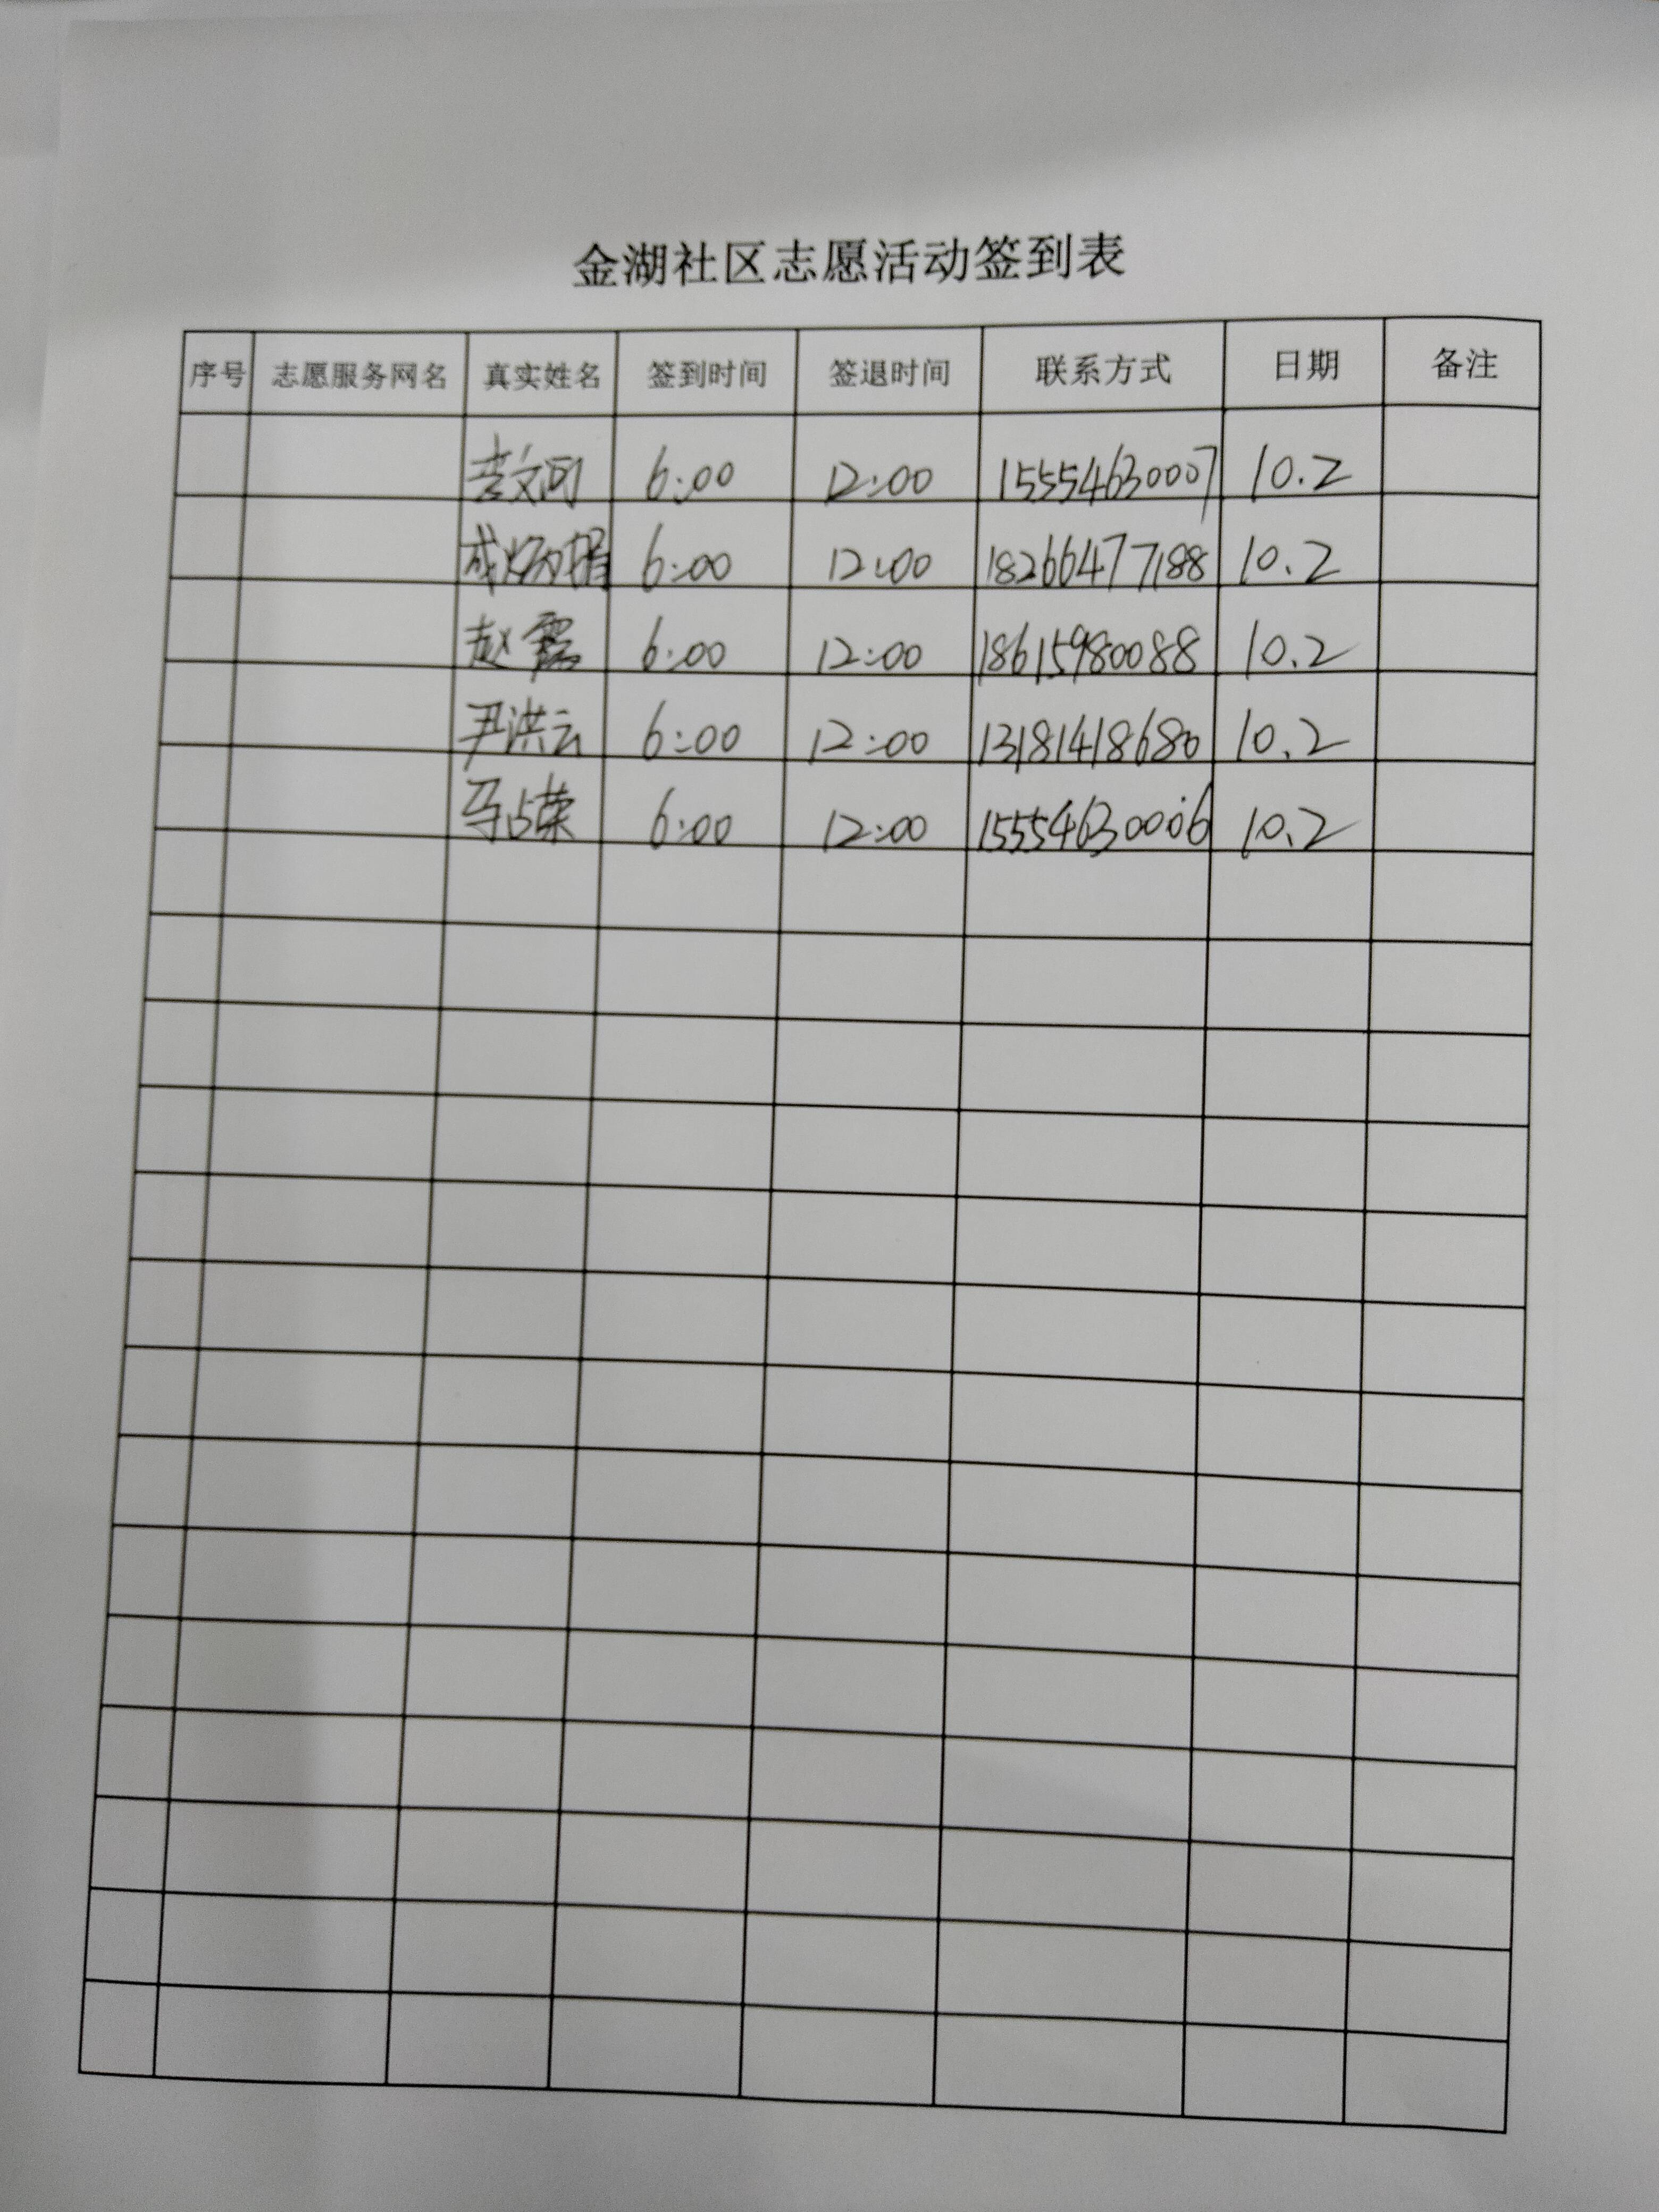 金湖社区志愿活动签到表
序号 志愿服务网名 真实姓名 签到时间 签退时间 联系方式 日期 备注
6:00 12:00 15554630007 10.2
6:00 12:00 18266477188 10.2
赵霞 6:00 12:00 18615980088 10.2
尹洪云 6:00 12:00 13181418680 10.2
马占荣 6:00 12:00 15554630006 10.2